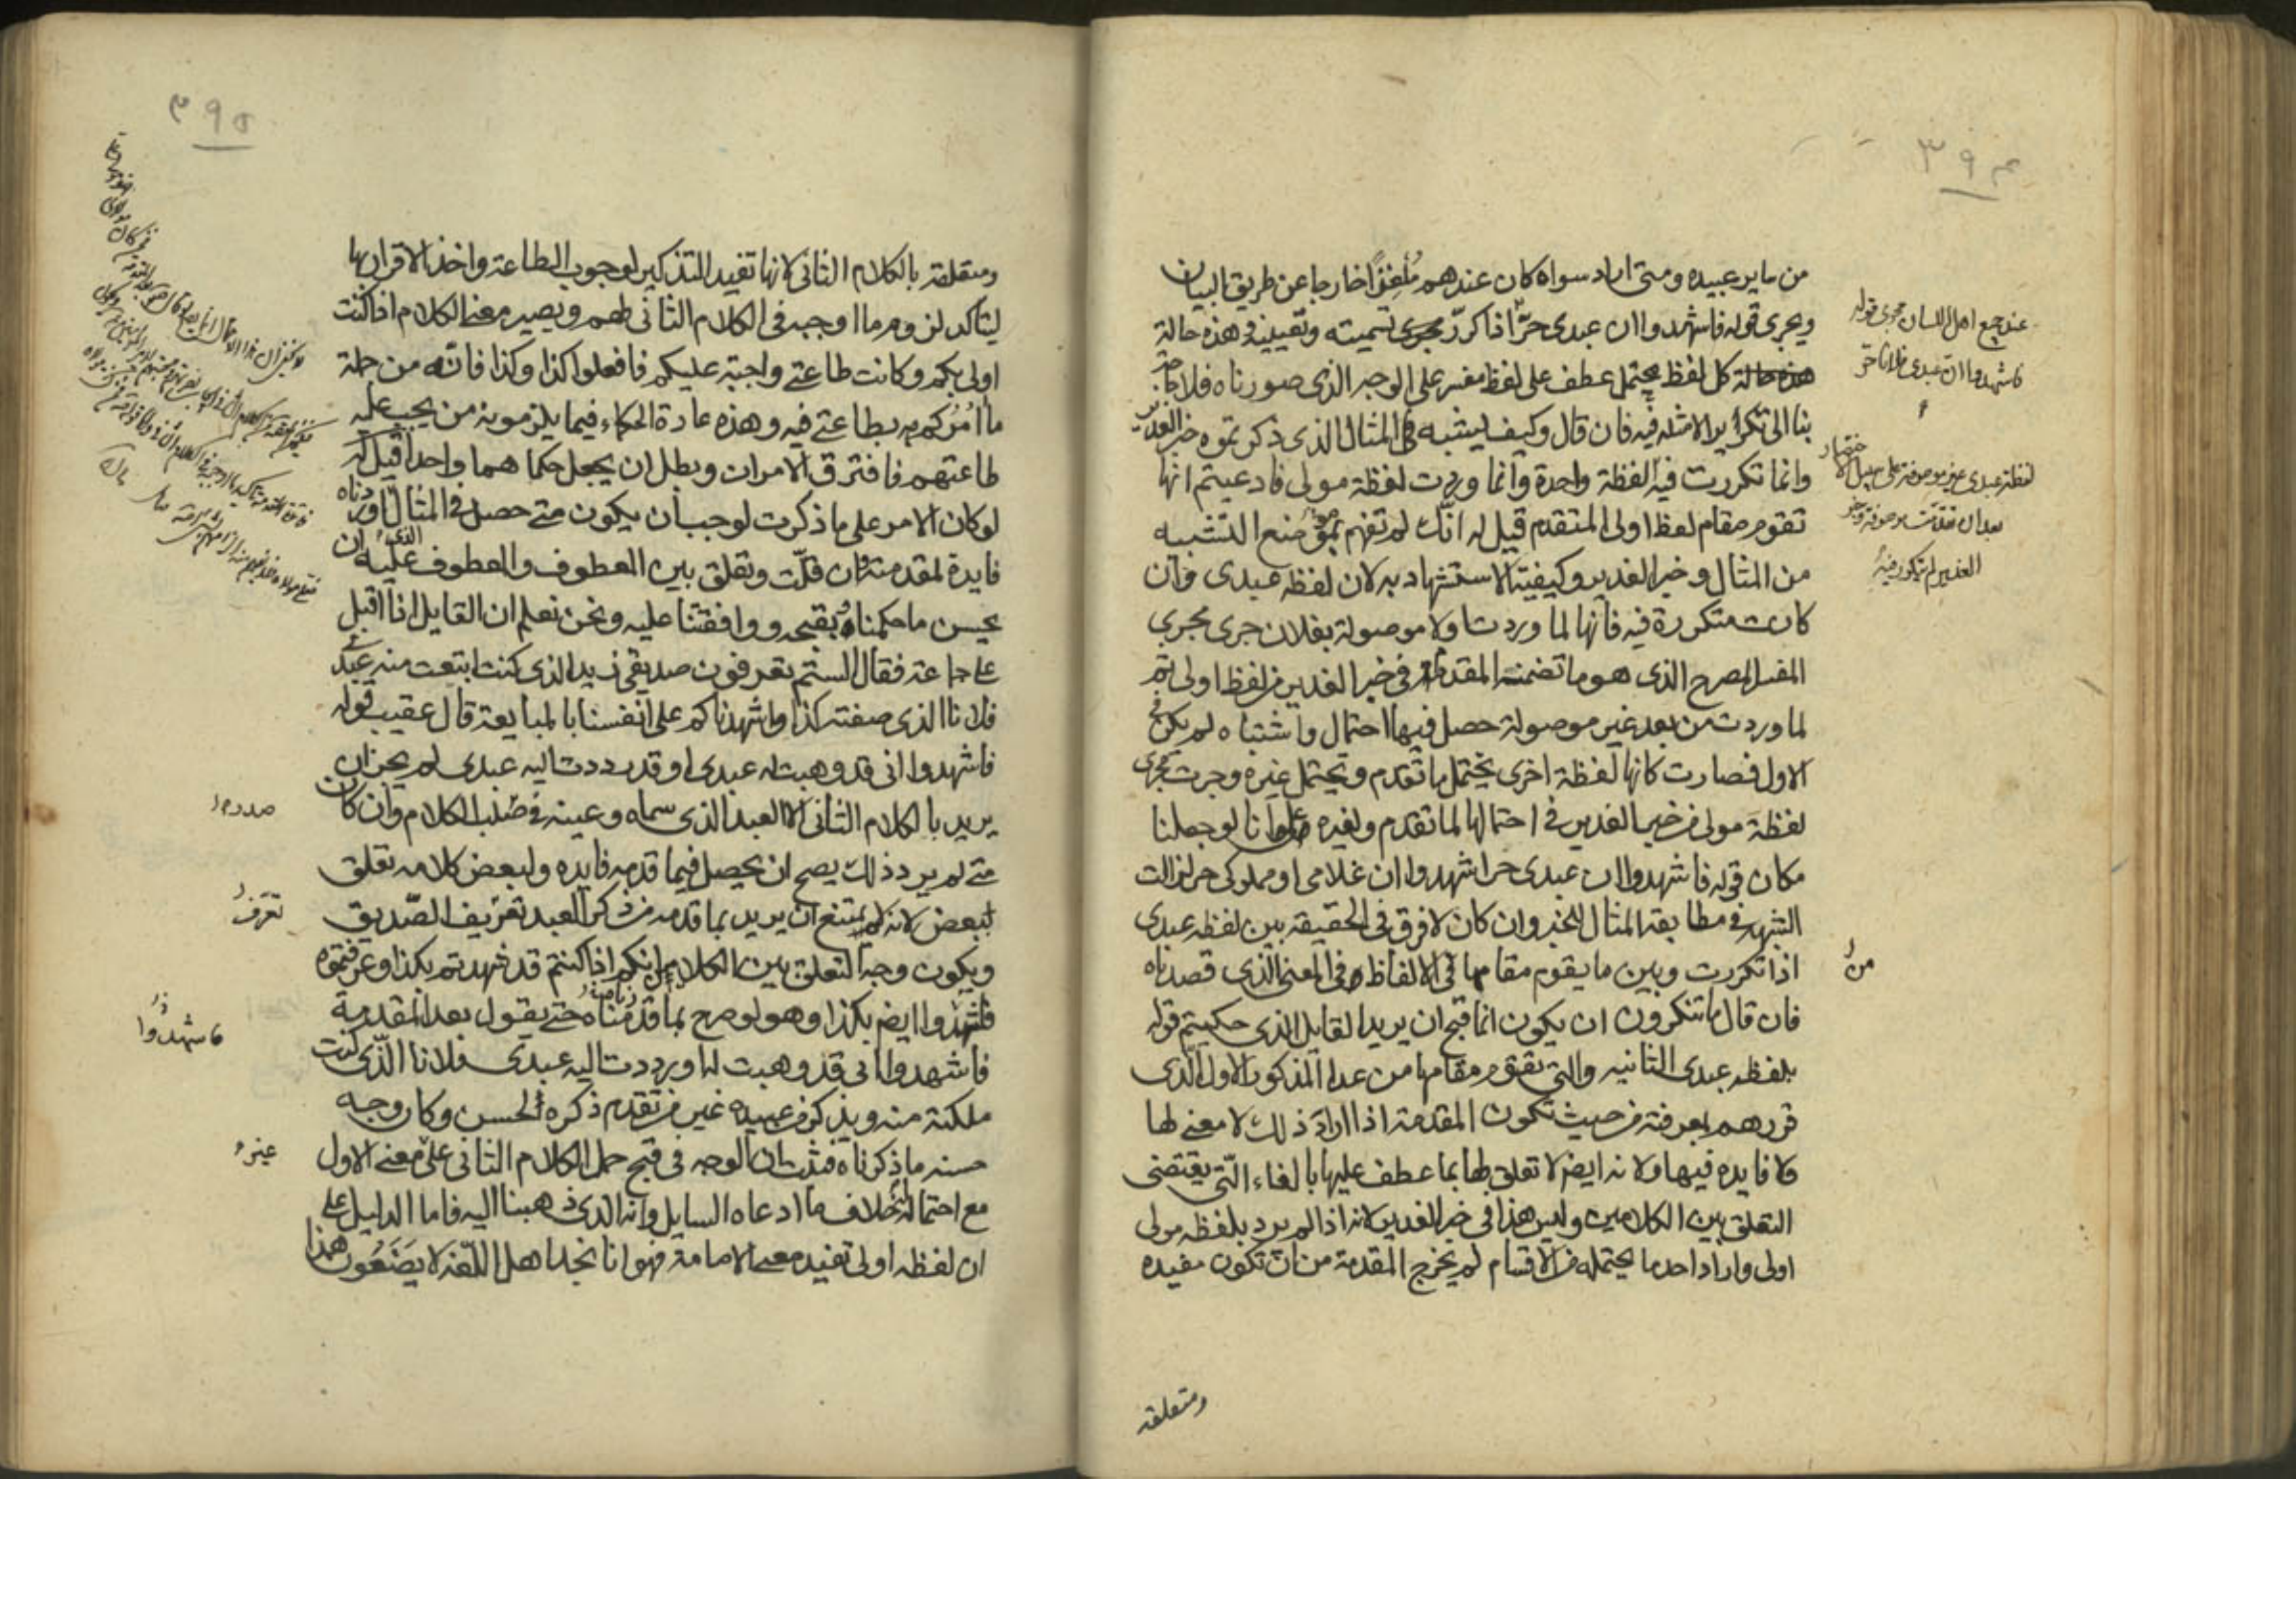 ٣٩٤
من ساير عبيده ومتى اراد سواه كان عندهم مُلغِزًا خارجا عن طريق البيان
ويجرى قوله فاشهدوا ان عبدى حرّ اذا كرر مجرى تسميته وتعيينه وهذه حالة
هذه حالة كل لفظ يحتمل عطف على لفظ مفسر على الوجه الذى صورناه فلا حاجة
بنا الى تكرار الامثلة فيه فان قال وكيف يشبه المثال الذى ذكرتموه خبر الغدير
وانما تكررت فيه لفظة واحدة وانما وردت لفظة مولى فادعيتم انها
تقوم مقام لفظ اولى المتقدم قيل له انك لم تفهم موضع التشبيه
من المثال وخبر الغدير وكيفية الاستشهاد به لان لفظة عبدى وان
كانت متكررة فيه فانها لما وردت اولا موصولة بفلان جرى مجرى
المفسر المصرح الذى هو ما تضمنته المقدمة فى خبر الغدير من لفظ اولى ثم
لما وردت من بعد غير موصولة حصل فيها احتمال واشتباه لم يكن فى
الاول فصارت كانها لفظة اخرى يحتمل ما تقدم ويحتمل غيره وجرت مجرى
لفظة مولى من خبر الغدير فى احتمالها لما تقدم ولغيره على انا لو جعلنا
مكان قوله فاشهدوا ان عبدى حر اشهدوا ان غلامى او مملوكى حر لزالت
الشبهة فى مطابقة المثال للخبر وان كان لا فرق فى الحقيقة بين لفظة عبدى
اذا تكررت وبين ما يقوم مقامها فى الالفاظ فى المعنى الذى قصدناه
فان قال ما تنكرون ان يكون انما قبح ان يريد القايل الذى حكيتم قوله
بلفظه عبدى الثانيه والتى تقوم مقامها من عدا المذكور الاول الذى
قررهم بمعرفته من حيث تكون المقدمة اذا اراد ذلك لا معنى لها
ولا فايده فيها ولانه ايضا لا تعلق لها بما عطف عليها بالفاء التى يقتضى
التعلق بين الكلامين وليس هذا فى خبر الغدير لانه اذا لم يرد بلفظه مولى
اولى واراد احد ما يحتمله من الاقسام لم يخرج المقدمة من ان تكون مفيده
ومتعلقة
عند جميع اهل اللسان مجرى قوله
فاشهدوا ان عبدى فلانا حر
لفظة عبدى غير موصوفة على سبيل الاختصار
بعد ان تقدمت موصوفة وخبر
الغدير لم يتكرر فيه
من
٣٩٥
ومتعلقة بالكلام الثانى لانها تفيد التذكير لوجوب الطاعة واخذ الاقرار بها
ليتاكد لزوم ما اوجبه فى الكلام الثانى لهم ويصير معنى الكلام اذا كنت
اولى بكم وكانت طاعتى واجبة عليكم فافعلوا كذا وكذا فانه من جملة
ما امركم به بطاعتى فيه وهذه عادة الحكماء فيما يلزمونه من يجب عليه
طاعتهم فافترق الامران وبطل ان يجعل حكمهما واحدا قيل له
لو كان الامر على ما ذكرت لوجب ان يكون متى حصل فى المثال الذى اوردناه
فايدة لمقدمته وان قلّت وتعلق بين المعطوف والمعطوف عليه ان
يحسن ما حكمنا بقبحه ووافقتنا عليه ونحن نعلم ان القايل اذا اقبل
على جماعة فقال الستم تعرفون صديقى زيد الذى كنت ابتعت منه عبدى
فلانا الذى صفته كذا واشهدناكم على انفسنا بالمبايعة قال عقيب قوله
فاشهدوا انى قد وهبت له عبدى او قد رددت اليه عبدى لم يجز ان
يريد بالكلام الثانى الا العبد الذى سماه وعينه فى صلب الكلام وان كان
متى لم يرد ذلك يصح ان يحصل فيما قدمه فايده ولبعض كلامه تعلق
ببعض لانه لا يمتنع ان يريد بما قدمه من ذكر العبد تعريف الصديق
ويكون وجه التعلق بين الكلامين انكم اذا كنتم قد شهدتم بكذا وعرفتموه
فاشهدوا ايضا بكذا وهو لو صرح بما قدمناه حتى يقول بعد المقدمة
فاشهدوا انى قد وهبت له او رددت اليه عبدى فلانا الذى كنت
ملكته منه ويذكر من عبيده غير من تقدم ذكره لحسن وكان وجه
حسنه ما ذكرناه فثبت ان الوجه فى قبح حمل الكلام الثانى على معنى الاول
مع احتماله لخلاف ما ادعاه السايل وانه الذى ذهبنا اليه فاما الدليل على
ان لفظه اولى تفيد معنى الامامة فهو انا نجد اهل اللغة لا يَضَعُون هذا
صدره
تعرف
فاشهدوا
غير